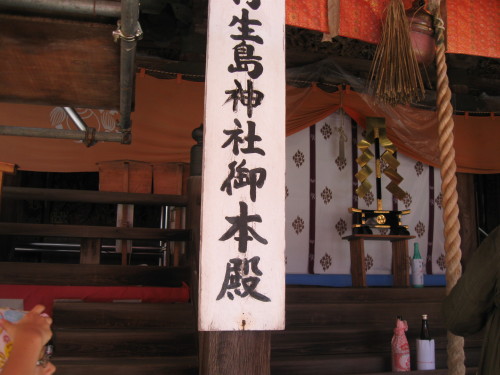 竹生島神社御本殿